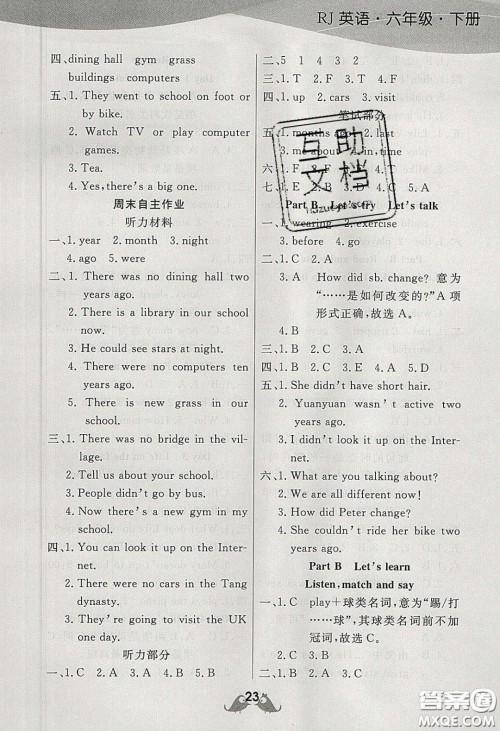 RJ 英语·六年级·下册
四、dining hall gym grass
buildings computers
五、1. They went to school on foot or
by bike.
2. Watch TV or play computer
games.
3. Tea.
4. Yes, there's a big one.
周末自主作业
听力材料
一、1. year 2. month 3. night
4. ago 5. were
二、1. There was no dining hall two
years ago.
2. There is a library in our school
now.
3. He could see stars at night.
4. There were no computers ten
years ago.
5. There is new grass in our
school.
三、1. There was no bridge in the vil-
lage.
2. Tell us about your school.
3. People didn't go by bus.
4. There's a new gym in my
school.
四、1. You can look it up on the Inter-
net.
2. There were no cars in the Tang
dynasty.
3. They're going to visit the UK
one day.
听力部分
一、1. C 2. A 3. A 4. B 5. A
二、1. C 2. A 3. B 4. A 5. B
三、1. T 2. F 3. T 4. F
四、1. up 2. cars 3. visit
笔试部分
五、1. months ago 2. last
3. me about 4. in, time
六、1.
七、1. E 2. D 3. C 4. B 5. A
Part B Let's try Let's talk
一、1. wearing 2. exercise
3. before 4. go
二、1. C 2. B
3. A How did sb. change? 意为
“……是如何改变的?”A 项
形式正确,故选 A。
4. B
三、1. B 2. C 3. A
四、1. B 2. C 3. A 4. E 5. D
五、1. She didn't have short hair.
2. Yuanyuan wasn't active two
years ago.
3. I could look it up on the Inter-
net.
六、1. What are you talking about?
2. We are all different now!
3. How did Peter change?
4. She couldn't ride her bike two
years ago.
Part B Let's learn
Listen, match and say
一、1. C play+球类名词,意为“踢/打
……球”,其球类名词前不加
冠词,故选 C。
2. B 3. C 4. A 5. A
23
互助
文档
答案圈
MXQE.COM